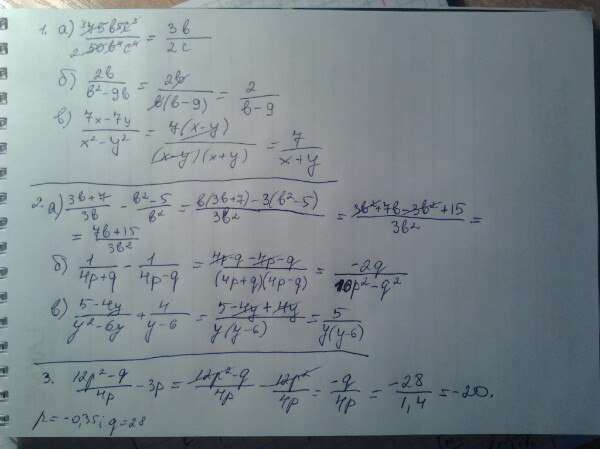 1. а) 75b⁵c³ / 50b⁴c⁴ = 3b / 2c
б) 2b / b²-9b = 2b / b(b-9) = 2 / b-9
в) 7x-7y / x²-y² = 7(x-y) / (x-y)(x+y) = 7 / x+y
2. а) 3b+7 / 3b - b²-5 / b² = b(3b+7)-3(b²-5) / 3b² = 3b²+7b-3b²+15 / 3b² =
= 7b+15 / 3b²
б) 1 / 4p+q - 1 / 4p-q = 4p-q-4p-q / (4p+q)(4p-q) = -2q / 16p²-q²
в) 5-4y / y²-6y + 4 / y-6 = 5-4y+4y / y(y-6) = 5 / y(y-6)
3. 12p²-q / 4p - 3p = 12p²-q / 4p - 12p² / 4p = -q / 4p = -28 / 1,4 = -20.
p=-0,35; q=28